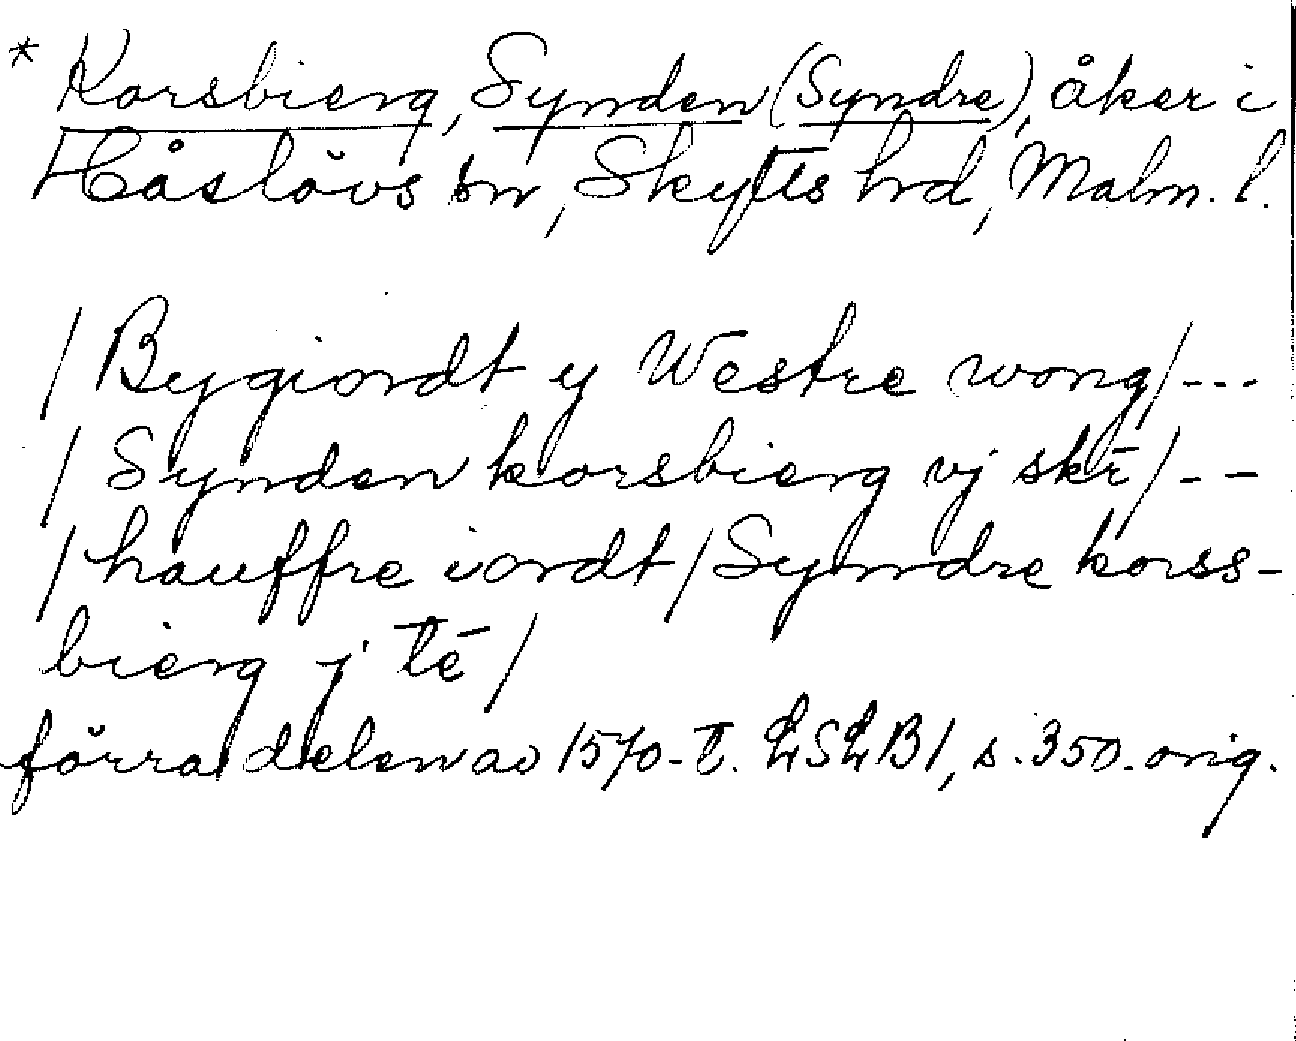 * Korsbierg, Synden (Syndre), åker i
Håslövs sn, Skytts hd, Malm. l.
/ Bygiordt y Westre wong/ ---
/ Synden korsbierg vj skr̄ / - -
/ hauffre iordt / Syndre korss-
bierg j tē /
förra delen av 1570-t. LSLB1, s. 350. orig.